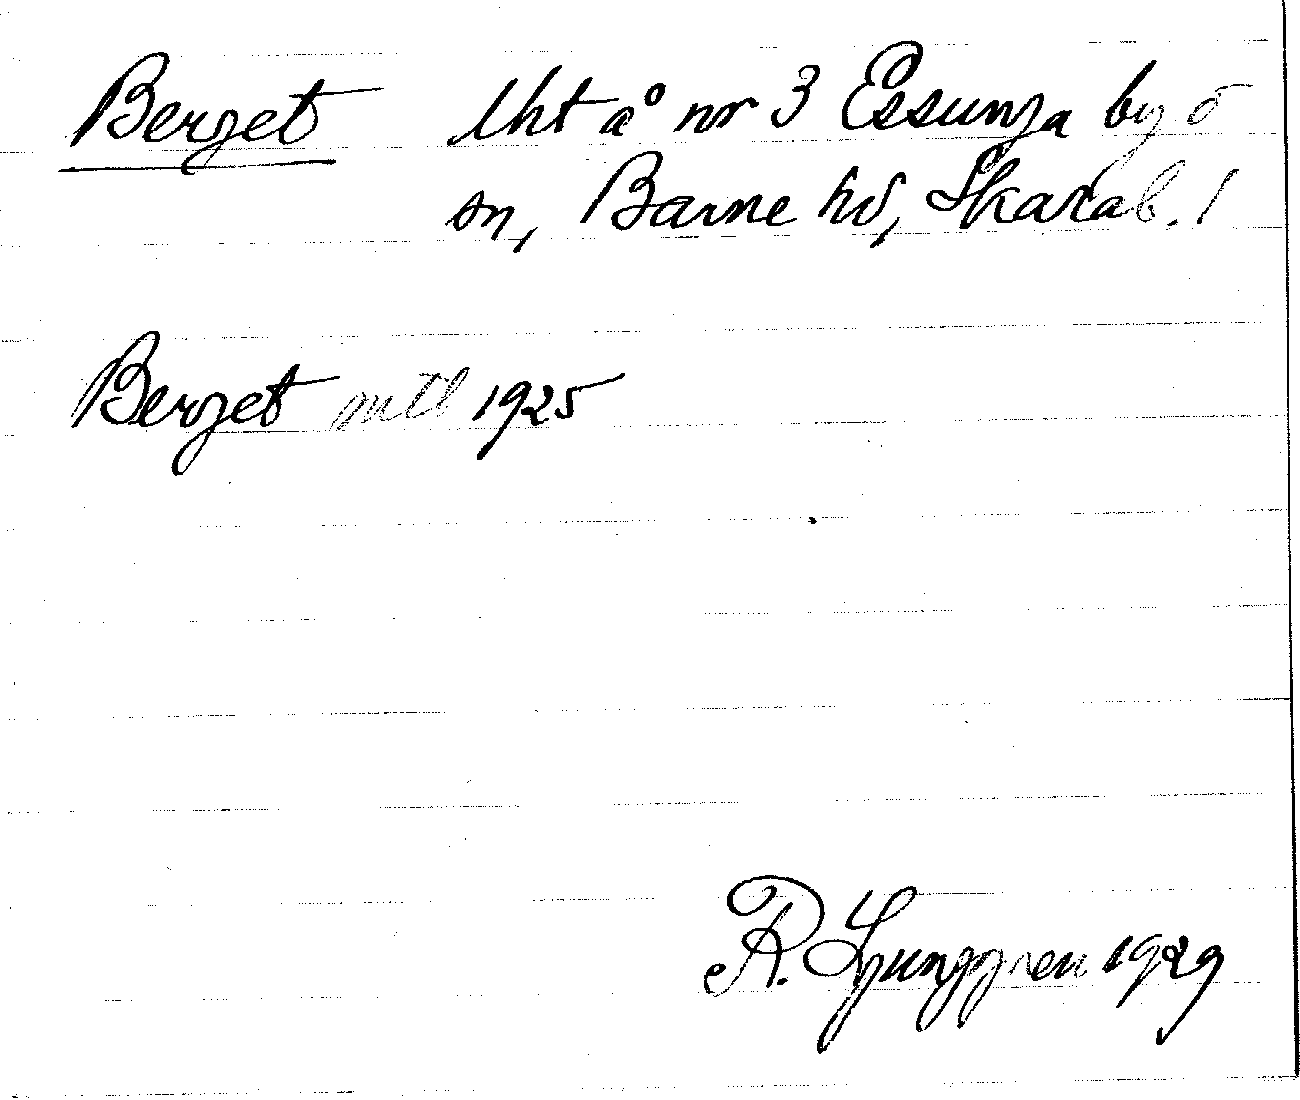 Berget lht å nr 3 Essunga by o
sn, Barne hd, Skarab. l
Berget mtl 1925
R. Ljunggren 1929